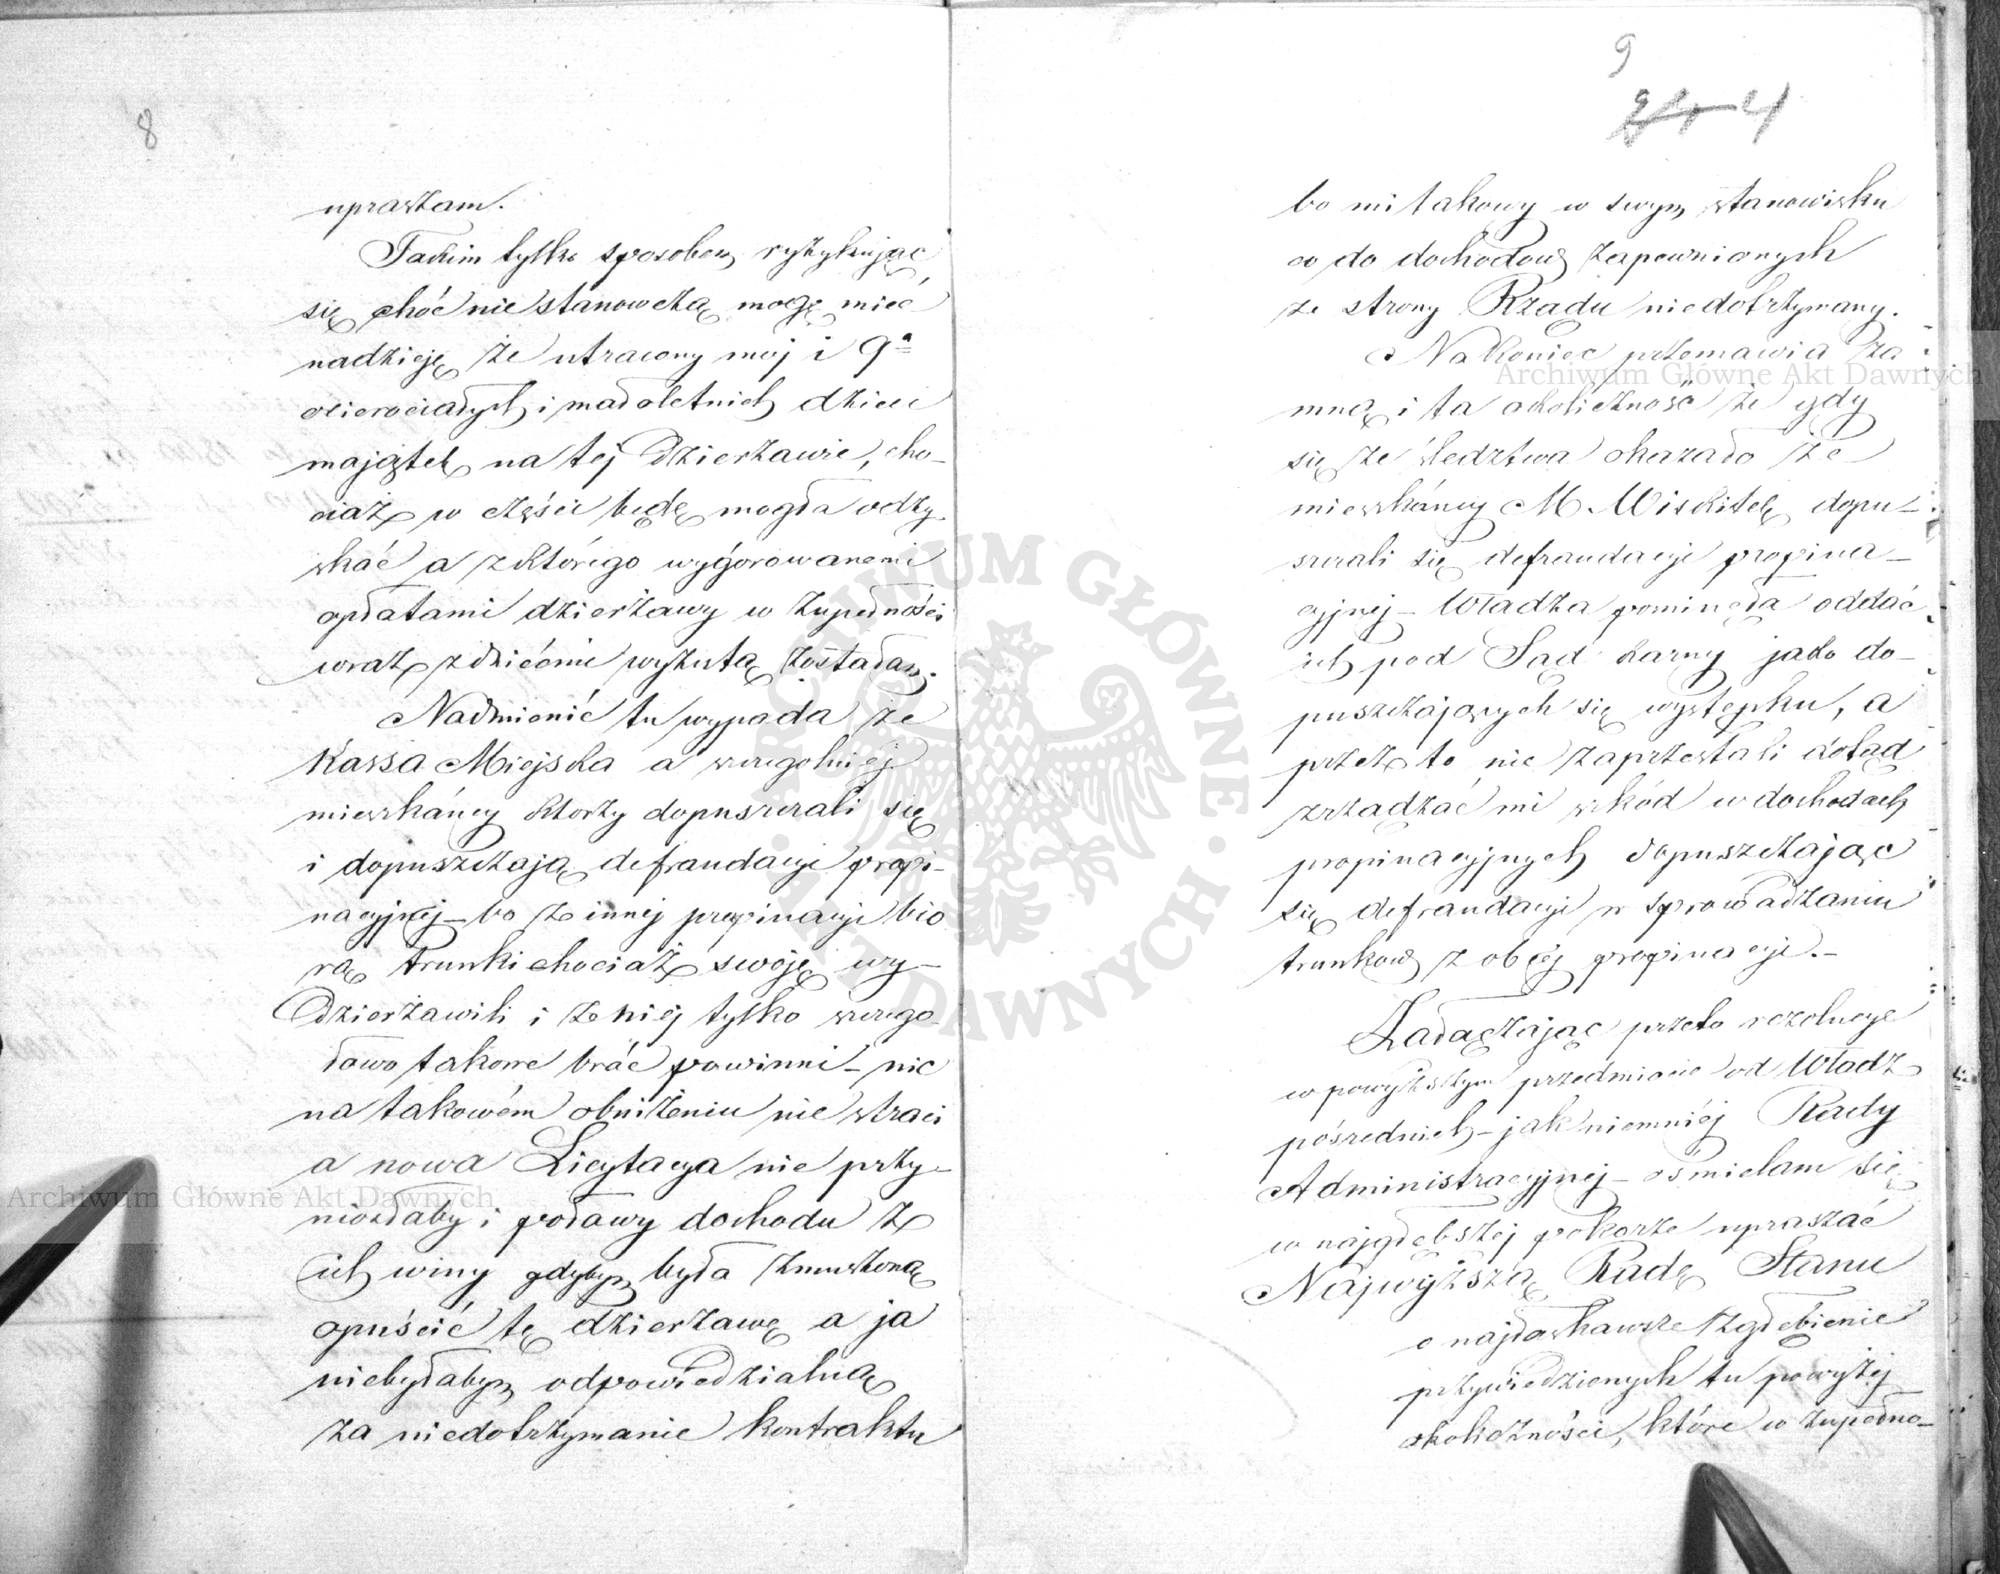 8
upraszam.
Takim tylko sposobem ryzykując
się choć nie stanowczą mogę mieć
nadzieję że utracony mój i 9ª
osierociałych i małoletnich dzieci
majątek na tej Dzierżawie, cho-
ciaż w części będę mogła odzy-
skać a z którego wygórowanemi
opłatami dzierżawy w zupełności
wraz z dziećmi wyzutą zostałam.
Nadmienić tu wypada że
Kassa Miejska a szczególniej
mieszkáncy którzy dopuszczali się
i dopuszczają defraudacyi propi-
nacyjnej – bo z innej propinacyi bio
rą trunki chociaż swoję wy-
dzierżawili i ze niej tylko szczegó-
łowo takowe brać powinni – nic
na takowém obniżeniu nie straci
a nowa Licytacya nie przy-
niosłaby i połowy dochodu z
ich winy gdybym była zmuszoną
opuścić tę dzierżawę a ja
niebyłabym odpowiedzialną
za niedotrzymanie kontraktu
9
4
bo mi takowy w swym stanowisku
co do dochodów zapewnionych
ze strony Rządu niedotrzymany.
Nakoniec przemawia za
mną i ta okoliczność że gdy
się ze śledztwa okazało że
mieszkáncy M. Wiskitek dopu-
szczali się defraudacyi propina-
cyjnej – Władza pominęła oddać
ich pod Sąd karny jako do-
puszczających się występku, a
przez to nie zaprzestali dotąd
zrządzać mi szkód w dochodach
propinacyjnych dopuszczając
się defraudacyi w sprowadzaniu
trunków z obcej propinacyi. –
Załączając przeto rezolucye
w powyższym przedmiocie od Władz
pośrednich – jak niemniéj Rady
Administracyjnej – ośmielam się
w najgłębszej pokorze upraszać
Najwyższą Radę Stanu
o najłaskawsze zgłębienie
przywiedzionych tu powyżej
okoliczności, które w zupełno-
Archiwum Główne Akt Dawnych
Archiwum Główne Akt Dawnych
ARCHIWUM GŁÓWNE · AKT DAWNYCH ·